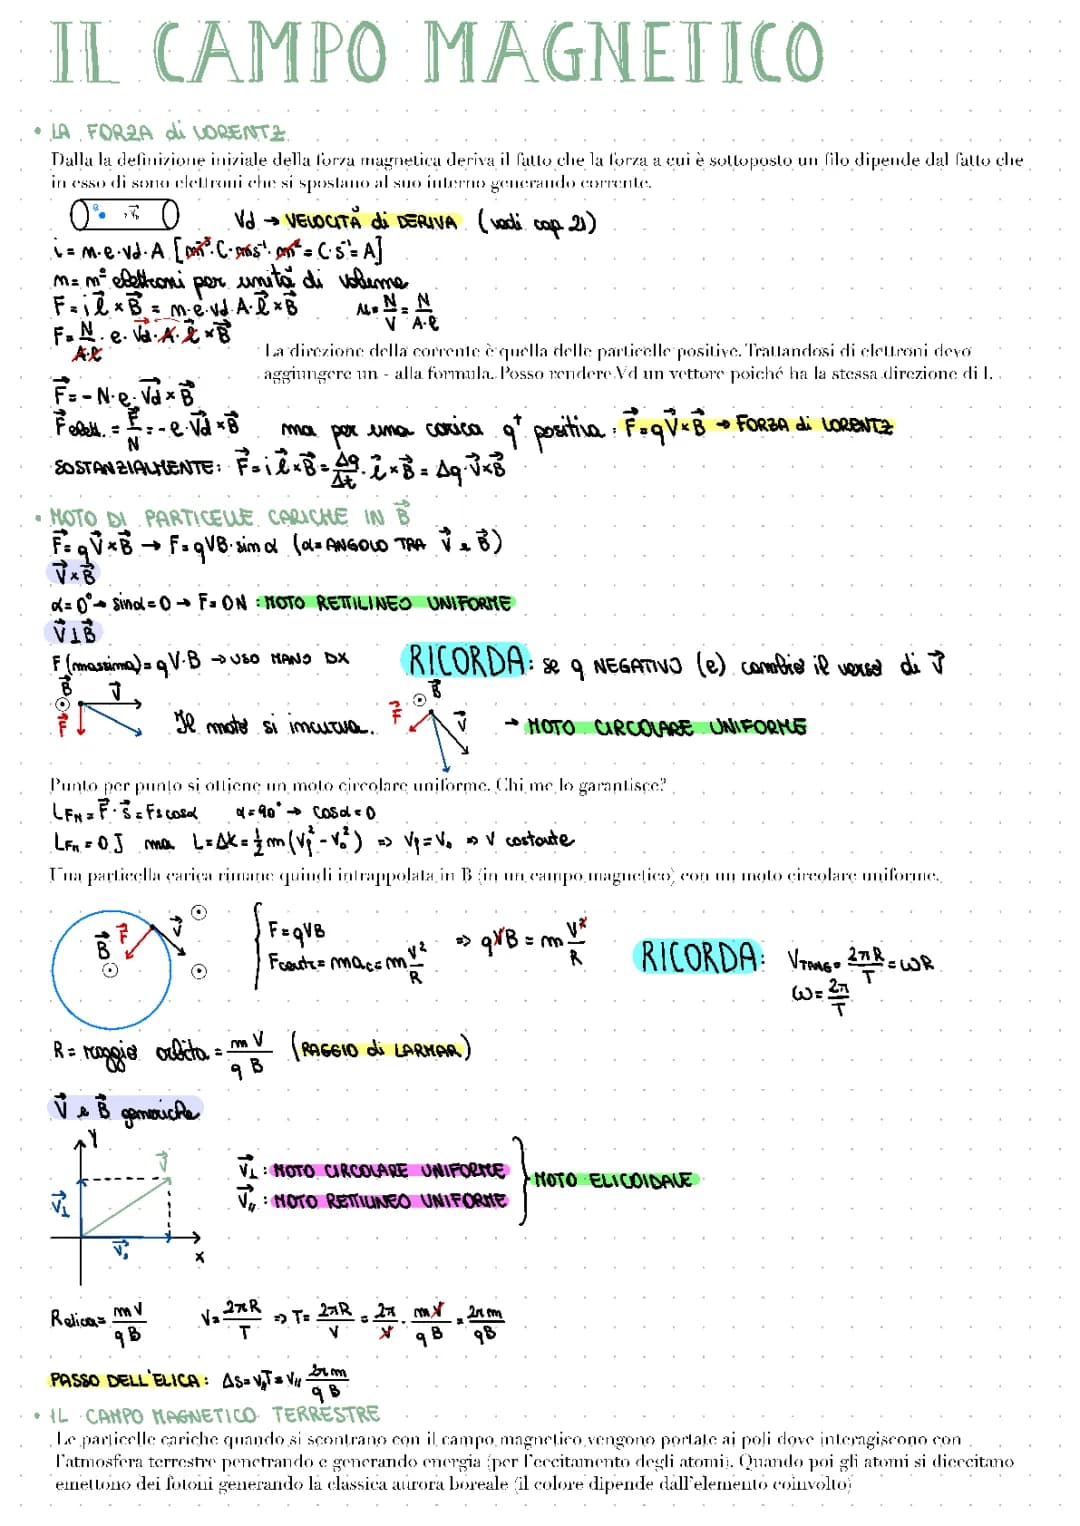 IL CAMPO MAGNETICO
• LA FORZA di LORENTZ
Dalla la definizione iniziale della forza magnetica deriva il fatto che la forza a cui è sottoposto un filo dipende dal fatto che
in esso di sono elettroni che si spostano al suo interno generando corrente.
Vd → VELOCITÀ di DERIVA (vedi cap 21)
i = n·e·vd·A [m⁻³·C·ms⁻¹·m² = C·s⁻¹ = A]
n = n° elettroni per unità di volume
F = i l⃗ × B⃗ = n·e·vd·A·l⃗ × B⃗ n = N/V = N/A·l
F = N/A·l · e · Vd · A · l⃗ × B⃗
La direzione della corrente è quella delle particelle positive. Trattandosi di elettroni devo
aggiungere un - alla formula. Posso rendere Vd un vettore poiché ha la stessa direzione di l.
F⃗ = - N·e·V⃗d × B⃗
F⃗ elett. = F⃗/N = - e·V⃗d × B⃗ ma per una carica q⁺ positiva : F⃗ = qV⃗ × B⃗ → FORZA di LORENTZ
SOSTANZIALMENTE: F⃗ = i l⃗ × B⃗ = Δq/Δt · l⃗ × B⃗ = Δq · V⃗ × B⃗
• MOTO DI PARTICELLE CARICHE IN B⃗
F⃗ = qV⃗ × B⃗ → F = qVB·sin α (α = ANGOLO TRA V⃗ e B⃗)
V⃗ × B⃗
α = 0° → sin α = 0 → F = 0N : MOTO RETTILINEO UNIFORME
V⃗ ⊥ B⃗
F (massima) = qV·B → USO MANO DX
RICORDA: se q NEGATIVO (e) cambio il verso di V⃗
B⃗ V⃗ F⃗
Il moto si incurva.
F⃗ B⃗ V⃗
→ MOTO CIRCOLARE UNIFORME
Punto per punto si ottiene un moto circolare uniforme. Chi me lo garantisce?
L FM = F⃗ · s⃗ = Fs cos α α = 90° → cos α = 0
L FM = 0 J ma L = ΔK = ½ m (Vf² - V₀²) => Vf = V₀ => V costante
Una particella carica rimane quindi intrappolata in B (in un campo magnetico) con un moto circolare uniforme.
B⃗ F⃗ V⃗
{ F = qVB
Fcentr = mac = m V²/R
=> qVB = m V²/R
RICORDA: VTANG = 2πR/T = ωR
ω = 2π/T
R = raggio orbita = mV/qB (RAGGIO di LARMAR)
V⃗ e B⃗ generiche
Y V⃗ V⃗⊥ V⃗,, x
V⃗⊥ : MOTO CIRCOLARE UNIFORME
V⃗,, : MOTO RETTILINEO UNIFORME
} MOTO ELICOIDALE
Relica = mV/qB V = 2πR/T => T = 2πR/V = 2π/V · mV/qB = 2πm/qB
PASSO DELL'ELICA : ΔS = V,,T = V,, 2πm/qB
• IL CAMPO MAGNETICO TERRESTRE
Le particelle cariche quando si scontrano con il campo magnetico vengono portate ai poli dove interagiscono con
l'atmosfera terrestre penetrando e generando energia (per l'eccitamento degli atomi). Quando poi gli atomi si diseccitano
emettono dei fotoni generando la classica aurora boreale (il colore dipende dall'elemento coinvolto)